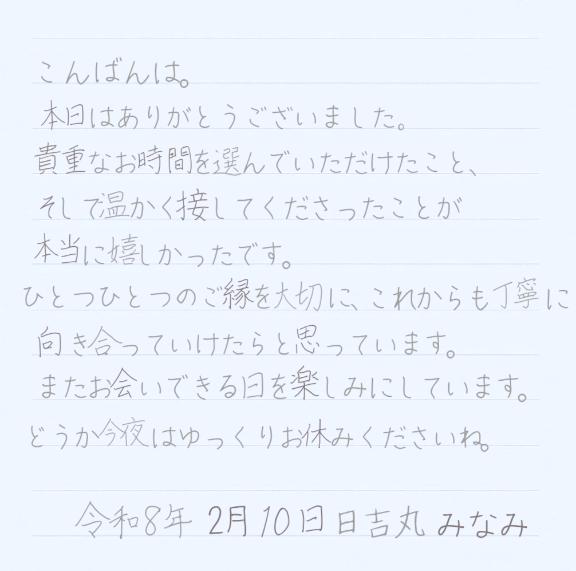 こんばんは。
本日はありがとうございました。
貴重なお時間を選んでいただけたこと、
そして温かく接してくださったことが
本当に嬉しかったです。
ひとつひとつのご縁を大切に、これからも丁寧に
向き合っていけたらと思っています。
またお会いできる日を楽しみにしています。
どうか今夜はゆっくりお休みくださいね。
令和8年 2月10日 日吉丸 みなみ